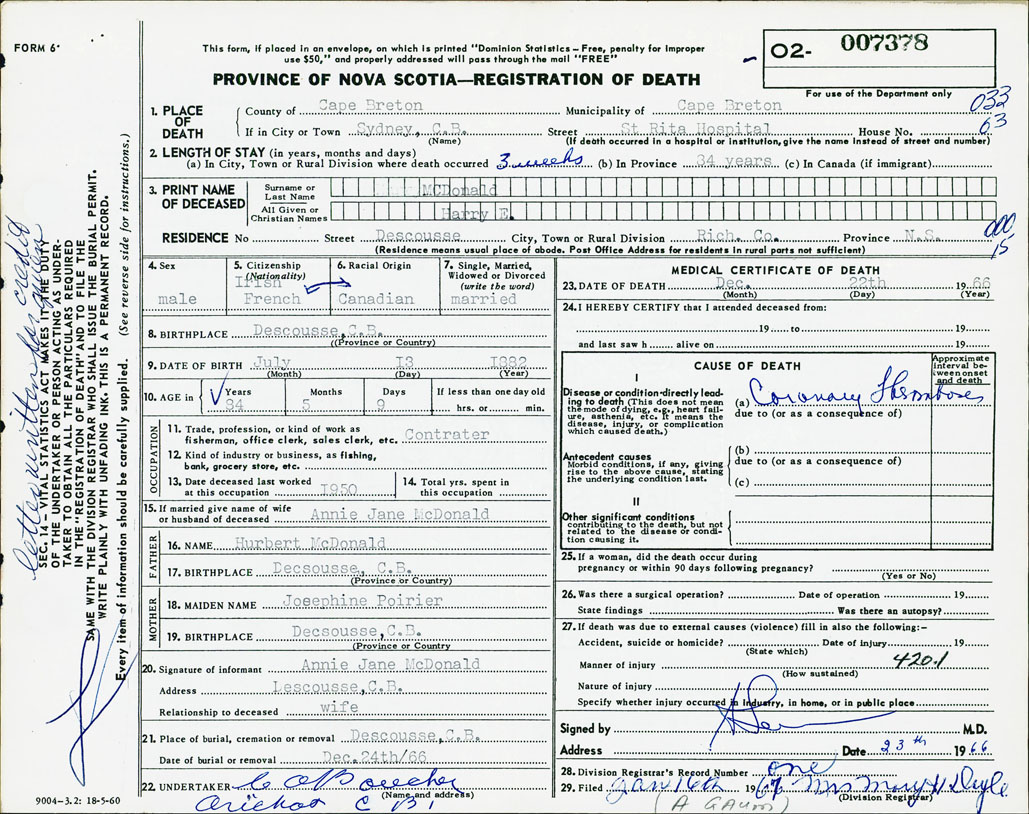 FORM 6
This form, if placed in an envelope, on which is printed "Dominion Statistics – Free, penalty for improper
use $50," and properly addressed will pass through the mail "FREE"
PROVINCE OF NOVA SCOTIA—REGISTRATION OF DEATH
O2- 007378
For use of the Department only
033
63
1. PLACE OF DEATH
County of Cape Breton Municipality of Cape Breton
If in City or Town Sydney, C.B. Street St Rita Hospital House No.
(Name) (If death occurred in a hospital or institution, give the name instead of street and number)
2. LENGTH OF STAY (in years, months and days)
(a) In City, Town or Rural Division where death occurred 3 weeks (b) In Province 34 years (c) In Canada (if immigrant)
3. PRINT NAME OF DECEASED
Surname or Last Name McDonald
All Given or Christian Names Harry E.
RESIDENCE No Street Descousse City, Town or Rural Division Rich. Co. Province N.S.
(Residence means usual place of abode. Post Office Address for residents in rural parts not sufficient)
000
15
4. Sex male
5. Citizenship (Nationality) Irish French
6. Racial Origin Canadian
7. Single, Married, Widowed or Divorced (write the word) married
8. BIRTHPLACE Descousse,C.B.
(Province or Country)
9. DATE OF BIRTH July 13 1882
(Month) (Day) (Year)
10. AGE in Years 84 Months 5 Days 9 If less than one day old hrs. or min.
OCCUPATION
11. Trade, profession, or kind of work as
fisherman, office clerk, sales clerk, etc. Contrater
12. Kind of industry or business, as fishing,
bank, grocery store, etc.
13. Date deceased last worked
at this occupation 1950
14. Total yrs. spent in
this occupation
15. If married give name of wife
or husband of deceased Annie Jane McDonald
FATHER
16. NAME Hurbert McDonald
17. BIRTHPLACE Decsousse, C.B.
(Province or Country)
MOTHER
18. MAIDEN NAME Josephine Poirier
19. BIRTHPLACE Decsousse,C.B.
(Province or Country)
20. Signature of informant Annie Jane McDonald
Address Lescousse,C.B.
Relationship to deceased wife
21. Place of burial, cremation or removal Descousse,C.B.
Date of burial or removal Dec.24th/66
22. UNDERTAKER C A Boucher
(Name and address)
Arichat C B
9004-3.2: 18-5-60
MEDICAL CERTIFICATE OF DEATH
23. DATE OF DEATH Dec. 22th 1966
(Month) (Day) (Year)
24. I HEREBY CERTIFY that I attended deceased from:
19 to 19
and last saw h alive on 19
CAUSE OF DEATH
Approximate interval between onset and death
I
Disease or condition directly leading to death (This does not mean
the mode of dying, e.g., heart failure, asthenia, etc. It means the
disease, injury, or complication
which caused death.)
(a) Coronary Thromboses
due to (or as a consequence of)
Antecedent causes
Morbid conditions, if any, giving
rise to the above cause, stating
the underlying condition last.
(b)
due to (or as a consequence of)
(c)
II
Other significant conditions
contributing to the death, but not
related to the disease or condition causing it.
25. If a woman, did the death occur during
pregnancy or within 90 days following pregnancy?
(Yes or No)
26. Was there a surgical operation? Date of operation 19
State findings Was there an autopsy?
27. If death was due to external causes (violence) fill in also the following:–
Accident, suicide or homicide? Date of injury 19
(State which)
Manner of injury 420.1
(How sustained)
Nature of injury
Specify whether injury occurred in Industry, in home, or in public place
Signed by M.D.
Address Date 23th 1966
28. Division Registrar's Record Number one
29. Filed Jan 16th 1967 Mrs Mary H Doyle
(Division Registrar)
SEC. 14 – VITAL STATISTICS ACT MAKES IT THE DUTY
OF THE UNDERTAKER OR PERSON ACTING AS UNDER-
TAKER TO OBTAIN ALL THE PARTICULARS REQUIRED
IN THE "REGISTRATION OF DEATH" AND TO FILE THE
SAME WITH THE DIVISION REGISTRAR WHO SHALL ISSUE THE BURIAL PERMIT.
WRITE PLAINLY WITH UNFADING INK. THIS IS A PERMANENT RECORD.
Every item of information should be carefully supplied. (See reverse side for instructions.)
letter written for